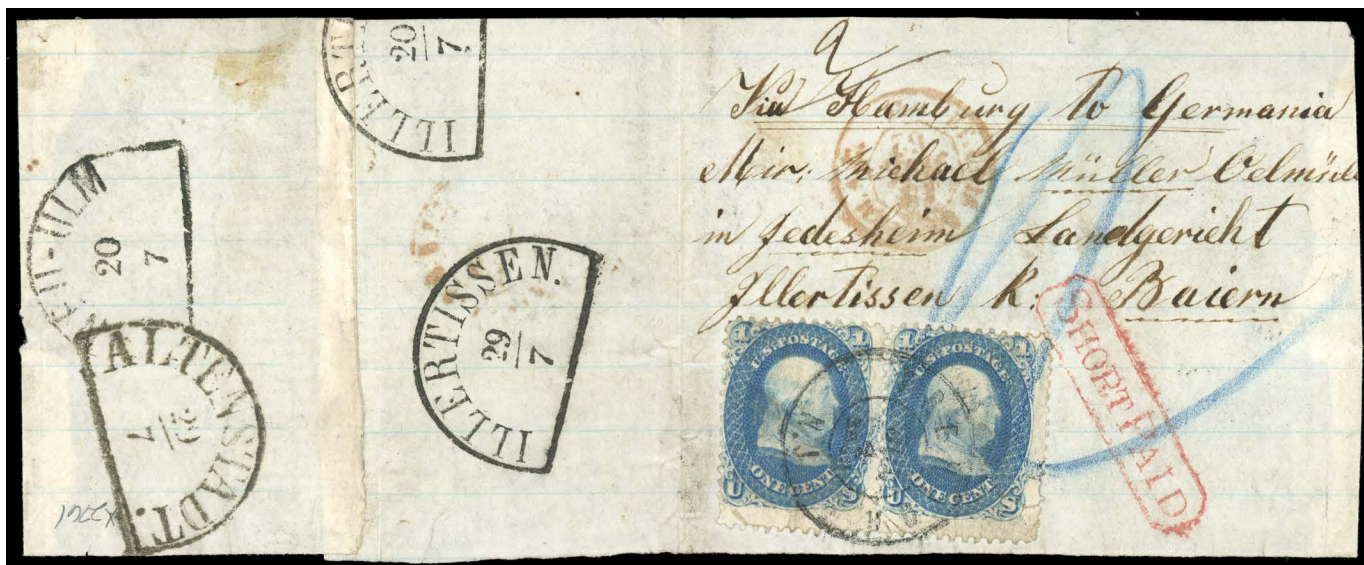 Via Hamburg to Germania
Mir. Michael Müller Oelmüll
in Jedesheim Landgericht
Illertissen K. Baiern
SHORT PAID
1 U.S. POSTAGE 1
U ONE CENT S
1 U.S. POSTAGE 1
U ONE CENT S
N.J.
ILLERT
20
7
NEU-ULM
20
7
ILLERTISSEN.
29
7
ALTENSTADT.
7
X2761